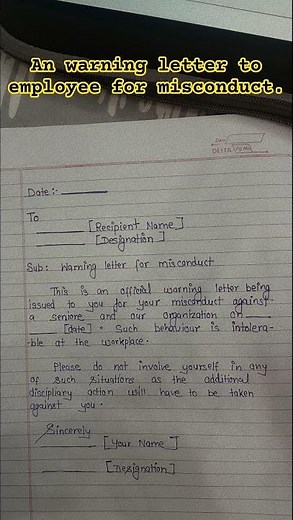 An warning letter to
employee for misconduct.
Date:- ________
To
________ [Recipient Name]
________ [Designation]
Sub: Warning letter for misconduct
This is an official warning letter being
issued to you for your misconduct against
a seniore and our organization on ______
______ [date]. Such behaviour is intolera-
-ble at the workplace.
Please do not involve yourself in any
of such situations as the additional
discipliary action will have to be taken
against you.
Sincerely
________ [Your Name]
________ [Designation]